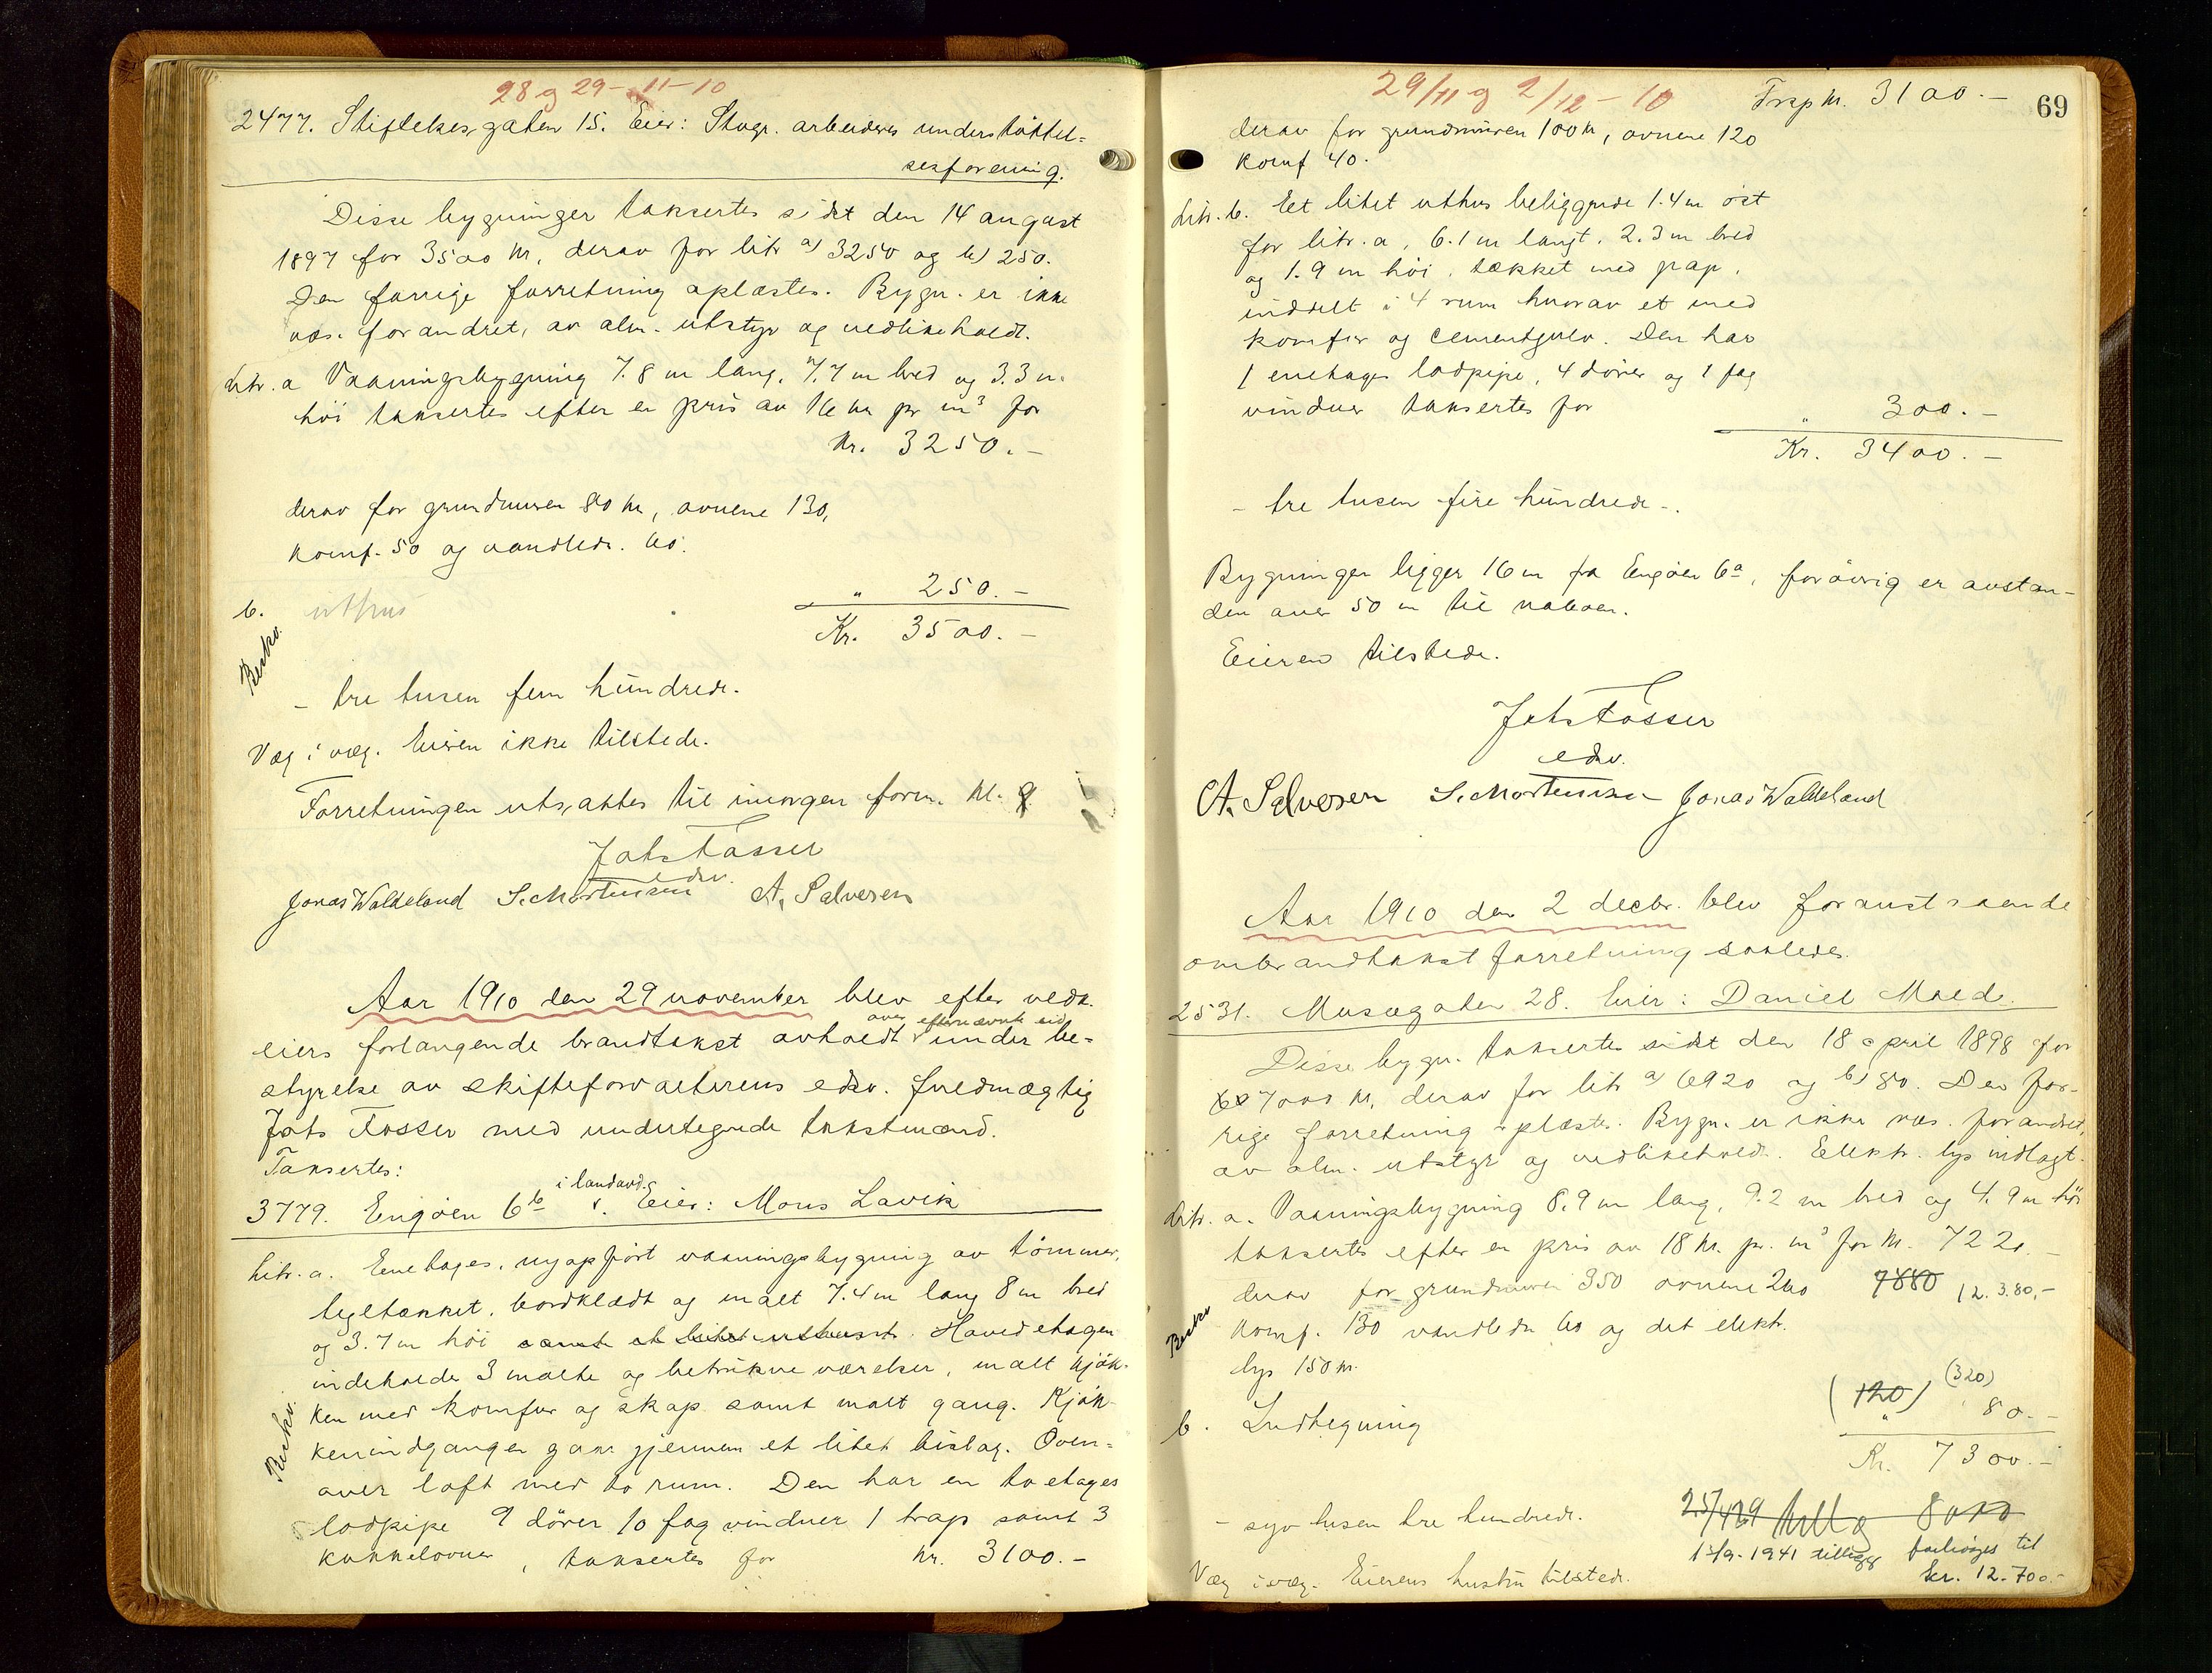 28 og 29-11-10
2477. Stiftelsesgaten 15. Eier: Stvgr. arbeideres understøttel=
sesforening.
Disse bygninger taksertes sidst den 14 august
1897 for 3500 kr, derav for litr a) 3250 og b) 250.
Den forrige forretning oplæstes. Bygn. er ikke
væs. forandret, av alm. utstyr og vedlikeholdt.
Litr. a Vaaningsbygning 7.8 m lang, 7.7 m bred og 3.3 m.
høi taksertes efter en pris av 16 kr pr m³ for
kr. 3250.-
derav for grundmuren 80 kr, ovnene 130,
komf. 50 og vandledn. 60.
b. uthus " 250.-
Kr. 3500.-
Beskr.
- tre tusen fem hundrede.
Væg i væg. Eieren ikke tilstede.
Forretningen utsattes til imorgen form. kl. 9
Johs Tosser
edsv.
Jonas Waldeland S. Mortensen A. Salvesen
Aar 1910 den 29 november blev efter vedk.
eiers forlangende brandtakst avholdt over efternævnte eid under be-
styrelse av skifteforvalterens edsv. fuldmægtig
Johs Tosser med undertegnede takstmænd.
Taksertes:
3779. Engøen 6b i landavd. Eier: Mons Lavik
Litr. a. Enetages, nyopført vaaningsbygning av tømmer,
tegltækket, bordklædt og malt 7.4 m lang 8 m bred
og 3.7 m høi samt et litet uthus. Hovedetagen
indeholder 3 malte og betrukne værelser, malt kjøk-
ken med komfur og skap samt malt gang. Kjøk-
kenindgangen gaar gjennem et litet bislag. Oven-
over loft med to rum. Den har en toetages
lodpipe 9 dører 10 fag vinduer 1 trap samt 3
kakkelovner, taksertes for kr. 3100.-
Beskr.
29/11 og 2/12-10
69
Trsp kr. 3100.-
derav for grundmuren 100 kr, ovnene 120
komf 40.
Litr. b. Et litet uthus beliggende 1.4 m øst
for litr. a, 6.1 m langt, 2.3 m bred
og 1.9 m høi, tækket med pap,
inddelt i 4 rum hvorav et med
komfur og cementgulv. Den har
1 enetages lodpipe, 4 dører og 1 fag
vinduer taksertes for " 300.-
Kr. 3400.-
- tre tusen fire hundrede -.
Bygningen ligger 16 m fra Engøen 6a, forøvrig er avstan-
den over 50 m til naboer.
Eieren tilstede.
Johs Tosser
edsv.
A. Salvesen S. Mortensen Jonas Waldeland
Aar 1910 den 2 decbr. blev foranstaaende
ombrandtakstforretning saaledes.
2531. Musegaten 28. Eier: Daniel Molde.
Disse bygn. taksertes sidst den 18 april 1898 for
7000 kr, derav for litr a) 6920 og b) 80. Den for-
rige forretning oplæstes. Bygn. er ikke væs. forandret,
av alm. utstyr og vedlikeholdt. Elektr. lys indlagt.
Litr. a. Vaaningsbygning 8.9 m lang, 9.2 m bred og 4.9 m høi
taksertes efter en pris av 18 kr. pr. m³ for kr. 7220.-
derav for grundmuren 350 ovnene 260 7880 12.380,-
komf. 130 vandledn 60 og det elektr.
lys 150 kr.
Beskr
b. Indhegning (120) (320) " 80.-
Kr. 7300.-
- syv tusen tre hundrede.
25/4 29 8000
13/9-1941 tillegg forhøies til
kr. 12.700.-
Væg i væg. Eierens hustru tilstede.